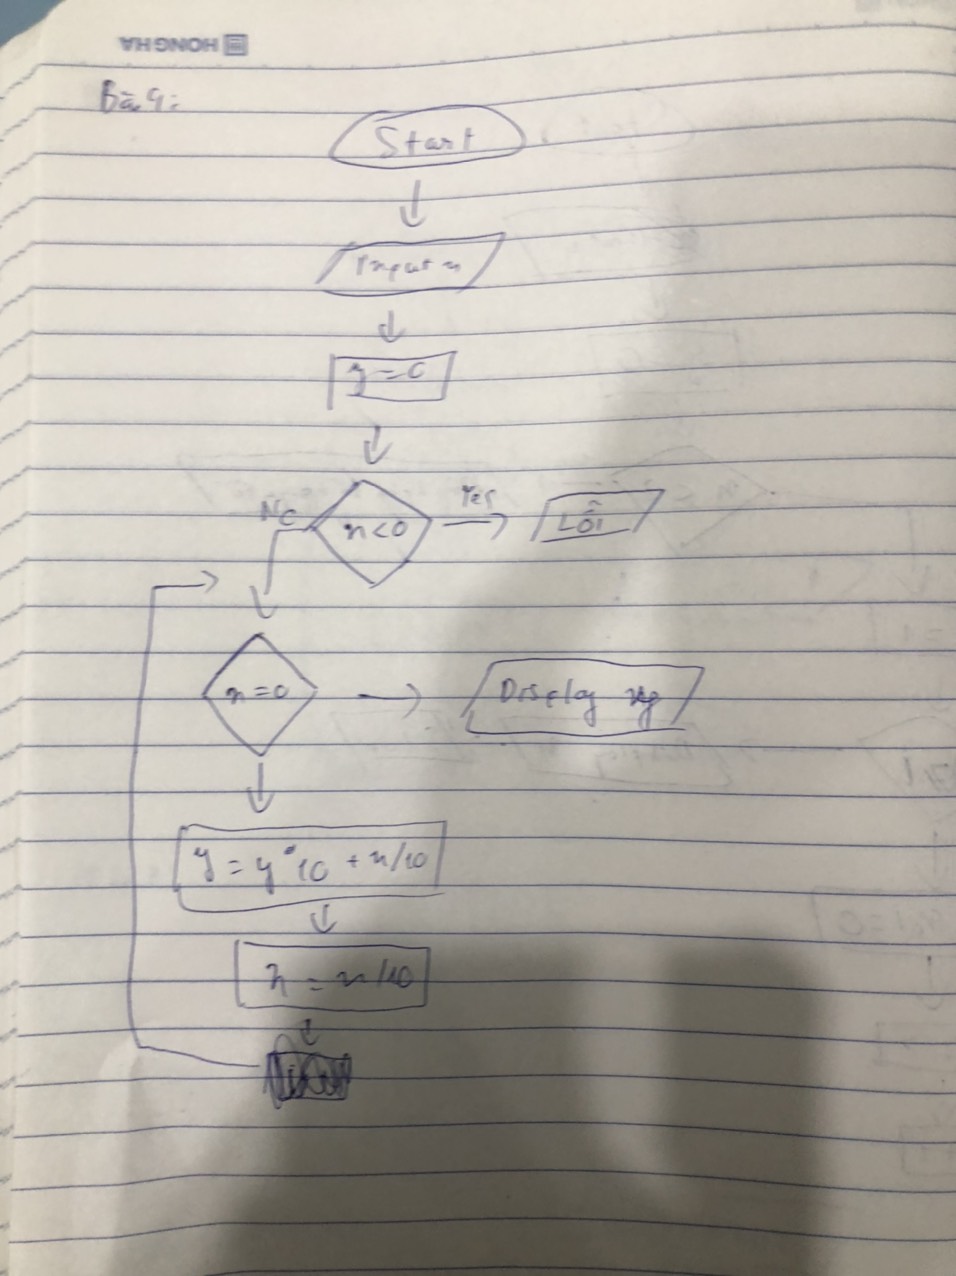 HONG HA
Bài 9:
Start
Input n
y = 0
No
n < 0
Yes
LỖI
n = 0
Display
y = y * 10 + n/10
n = n/10